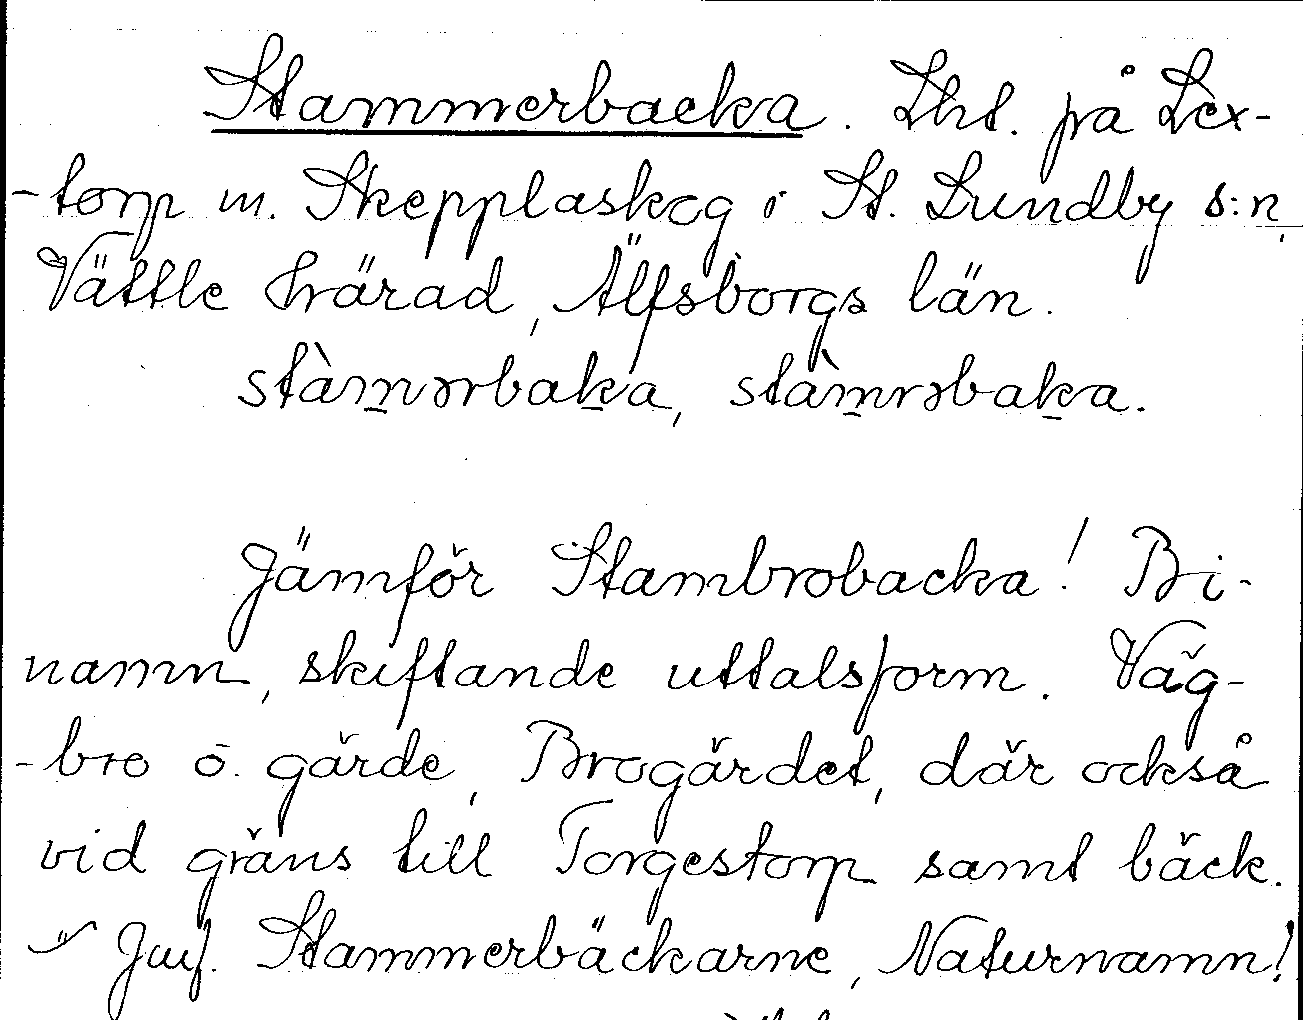 Stammerbacka. Lht. på Lex-
-torp m. Skepplaskog i St. Lundby s:n,
Vättle härad, Älfsborgs län.
stàmərbaka, stàmrəbaka.
Jämför Stambrobacka! Bi-
namn, skiftande uttalsform. Väg-
-bro o. gärde, Brogärdet, där också
vid gräns till Torgestorp samt bäck.
Jmf. Stammerbäckarne, Naturnamn!